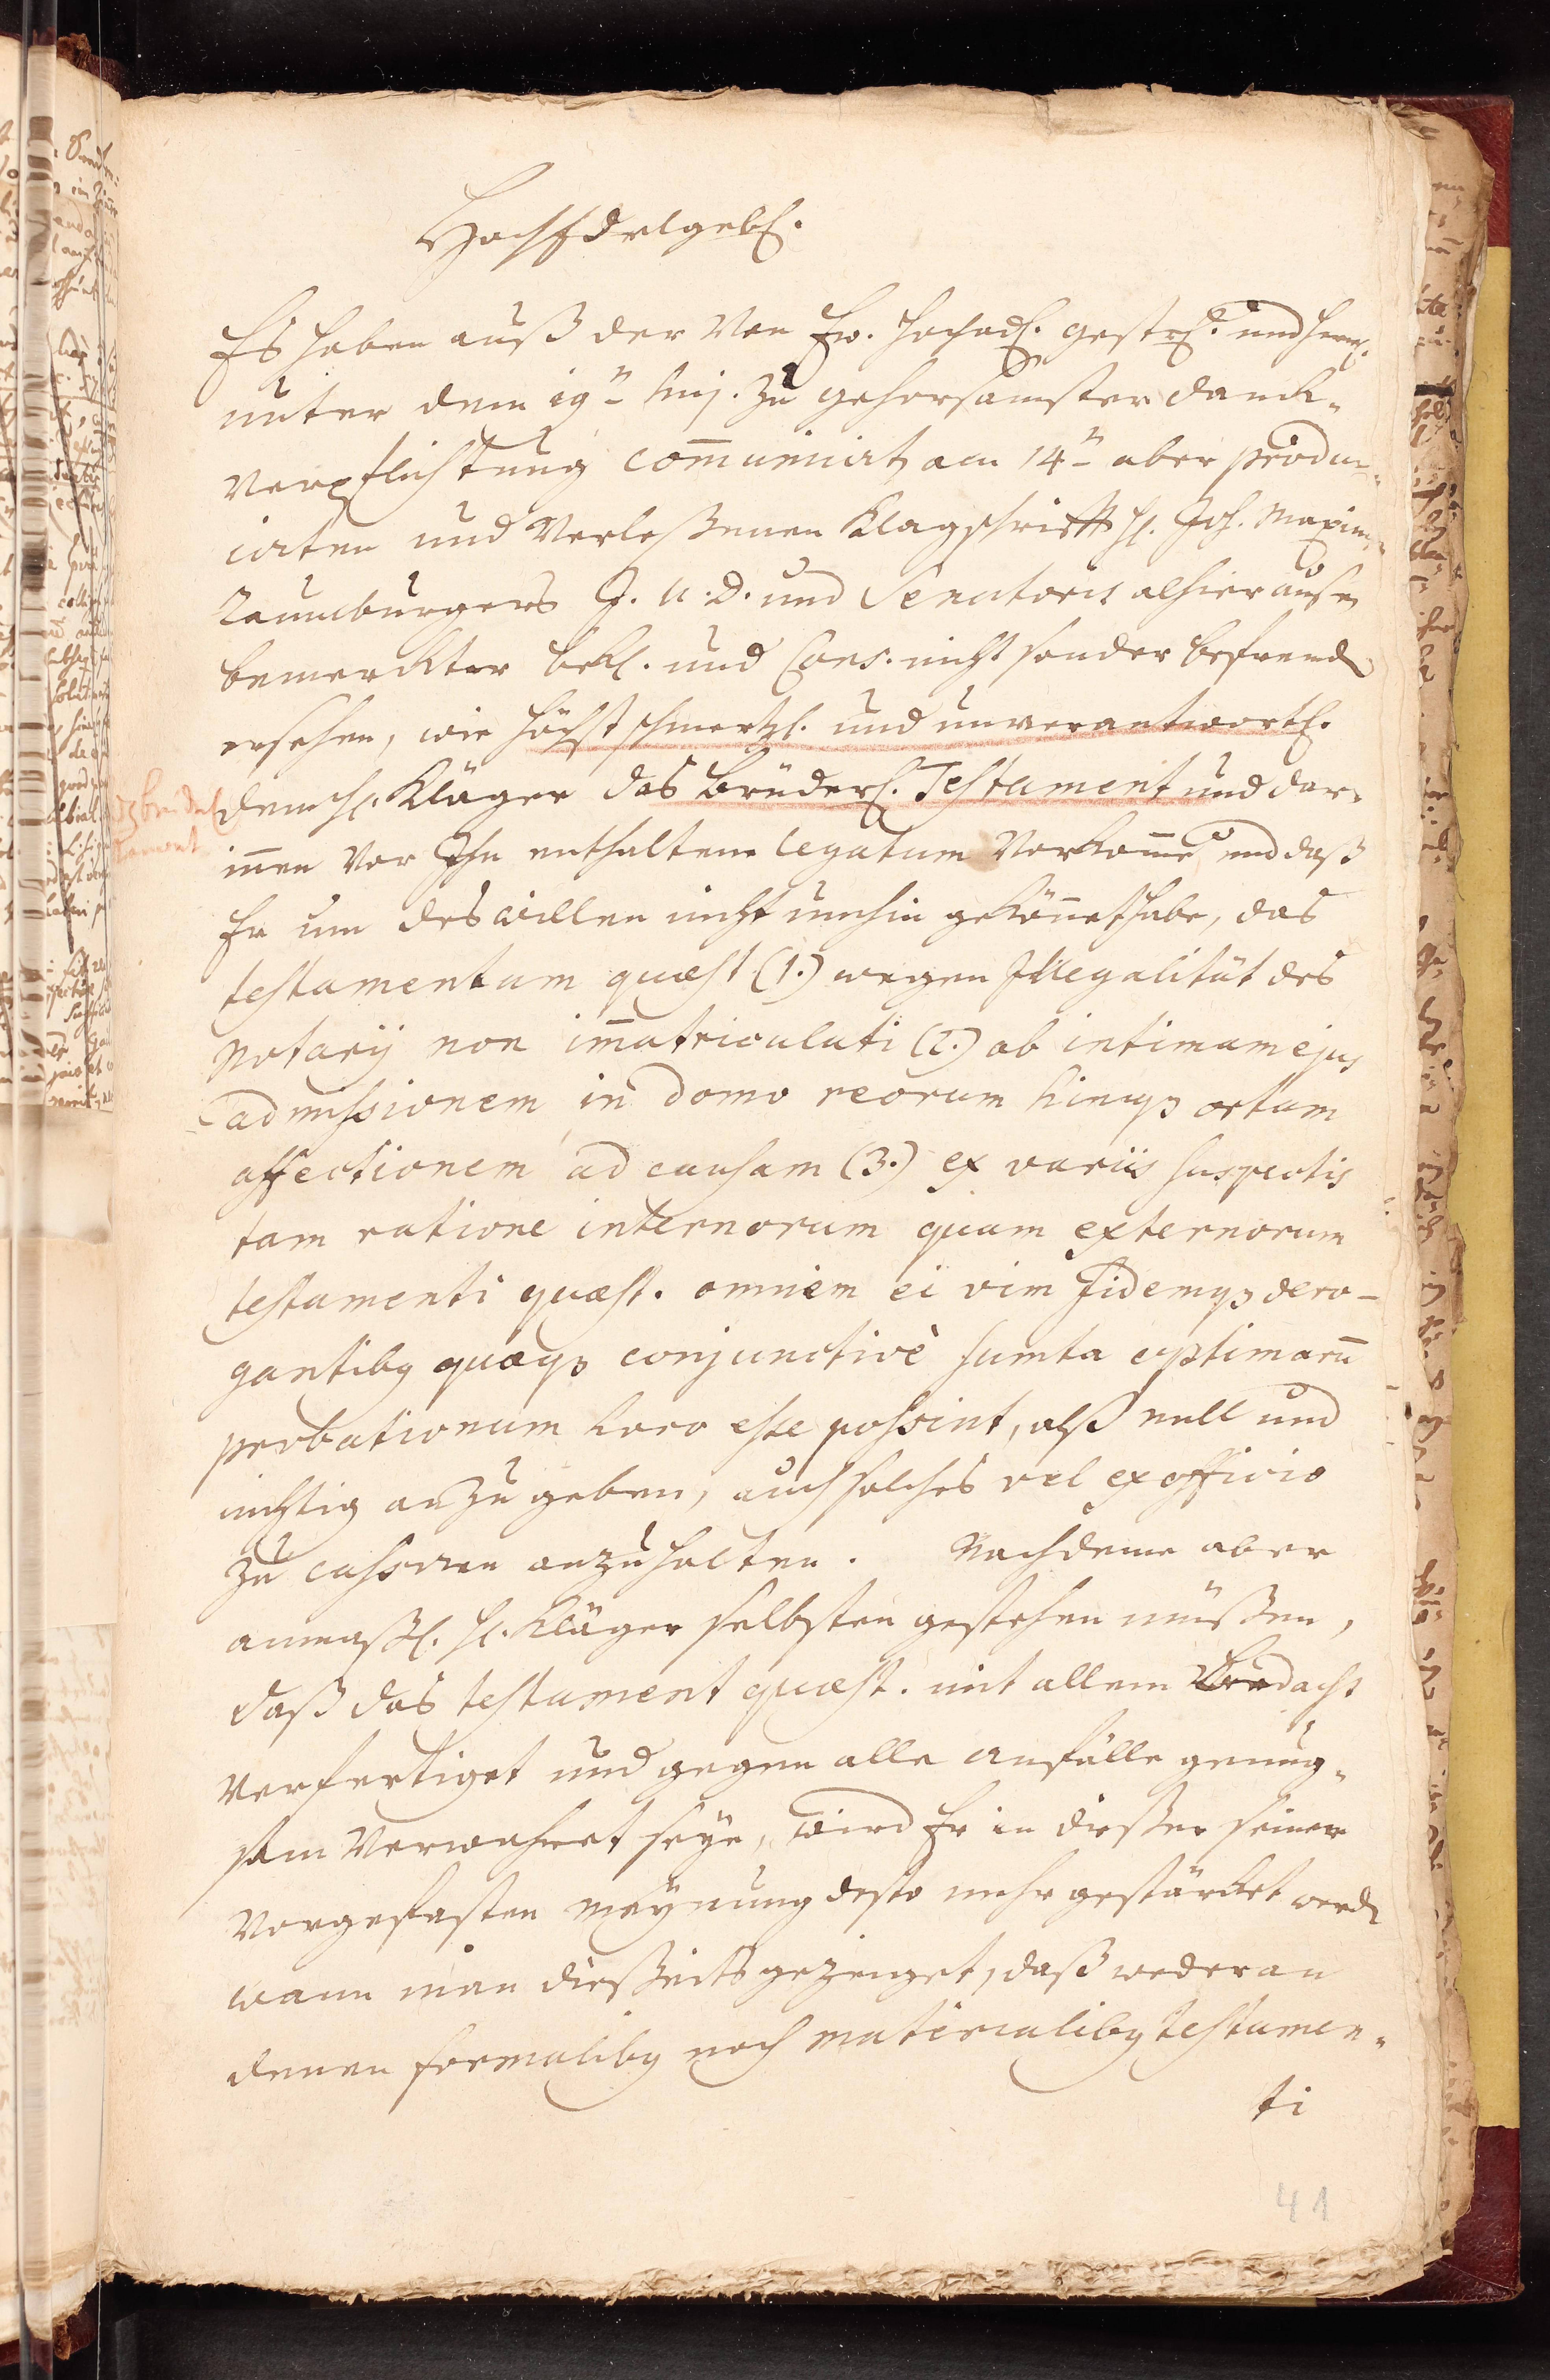 HochEdelgeb.
Es haben auß der von Ew. hochadl. gestr. und herrl.
unter dem 19n huj. zu gehorsamster danck-
verpflichtung com̅uniciꝛt, am 14n aber produ-
cirten und verleßenen Klagschrifft H. Joh. Maxim.
Zaumburgers J. U. D. und Senatoris alhier außen
bemerckter bekl. und Cons. nicht sonder befremd
ersehen, wie höchst schmertzl. und unverantwortl.
dem H. Kläger das brüderl. Testament und dar-
innen vor Ihn enthaltene legatum vorkom̅e und daß
Er um deswillen nicht umhin gekönnet habe, das
testamentum quæst. (1.) wegen Illegalität des
Notarij non im̅atriculati (2.) ob intimam ejus
admissionem in domo reorum hincq3 ortam
affectionem ad causam (3.) ex variis suspectis
tam ratione internorum quam externorum
testamenti quæst. omnem ei vim fidemq3 dero-
gantibq quæq3 conjunctivè sumta optimaru̅
probationum loco esse possint, alß null und
nichtig anzugeben, auch solches vel ex officio
zu cassiren anzuhalten. Nachdeme aber
anmaßl. H. Kläger selbsten gestehen müßen,
daß das testament quæst. mit allem Bedacht
verfertiget und gegen alle anfälle genug-
sam verwahret seye, wird Er in dießer seiner
vorgefasten meynung desto mehr gestärcket werd
wann man dießeits gezeiget, daß weder an
denen formalibq noch materialibq testamen-
ti
41